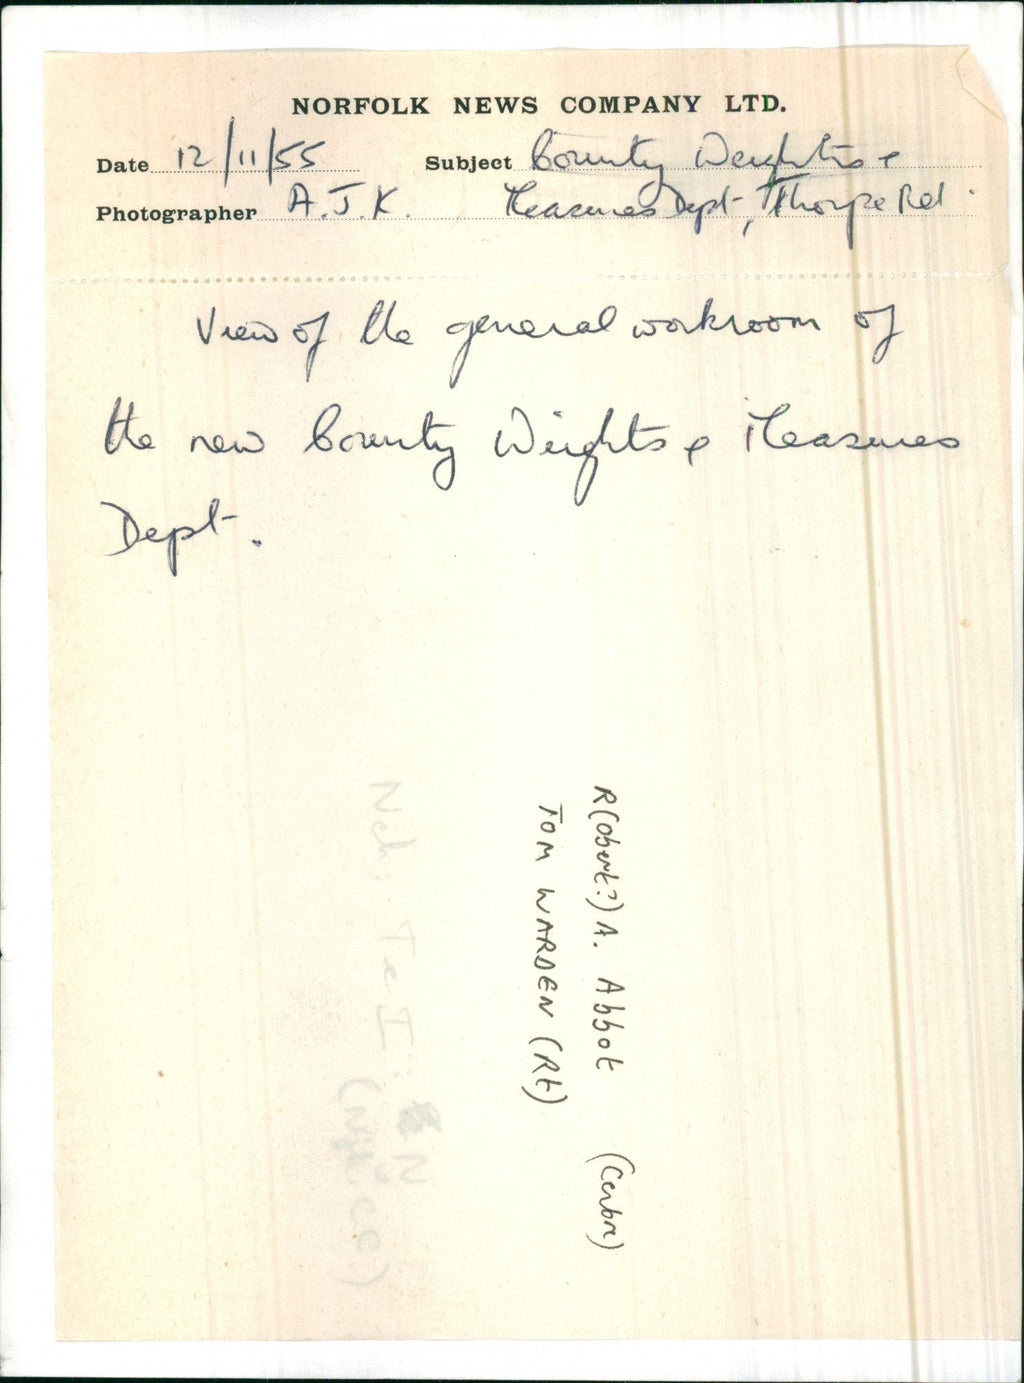 NORFOLK NEWS COMPANY LTD.
Date 12/11/55 Subject County Weights &
Photographer A.J.K. Measures Dept, Thorpe Rd.
View of the general workroom of
the new County Weights & Measures
Dept.
R(obert?) A. Abbot (Centre)
TOM WARDEN (Rt)